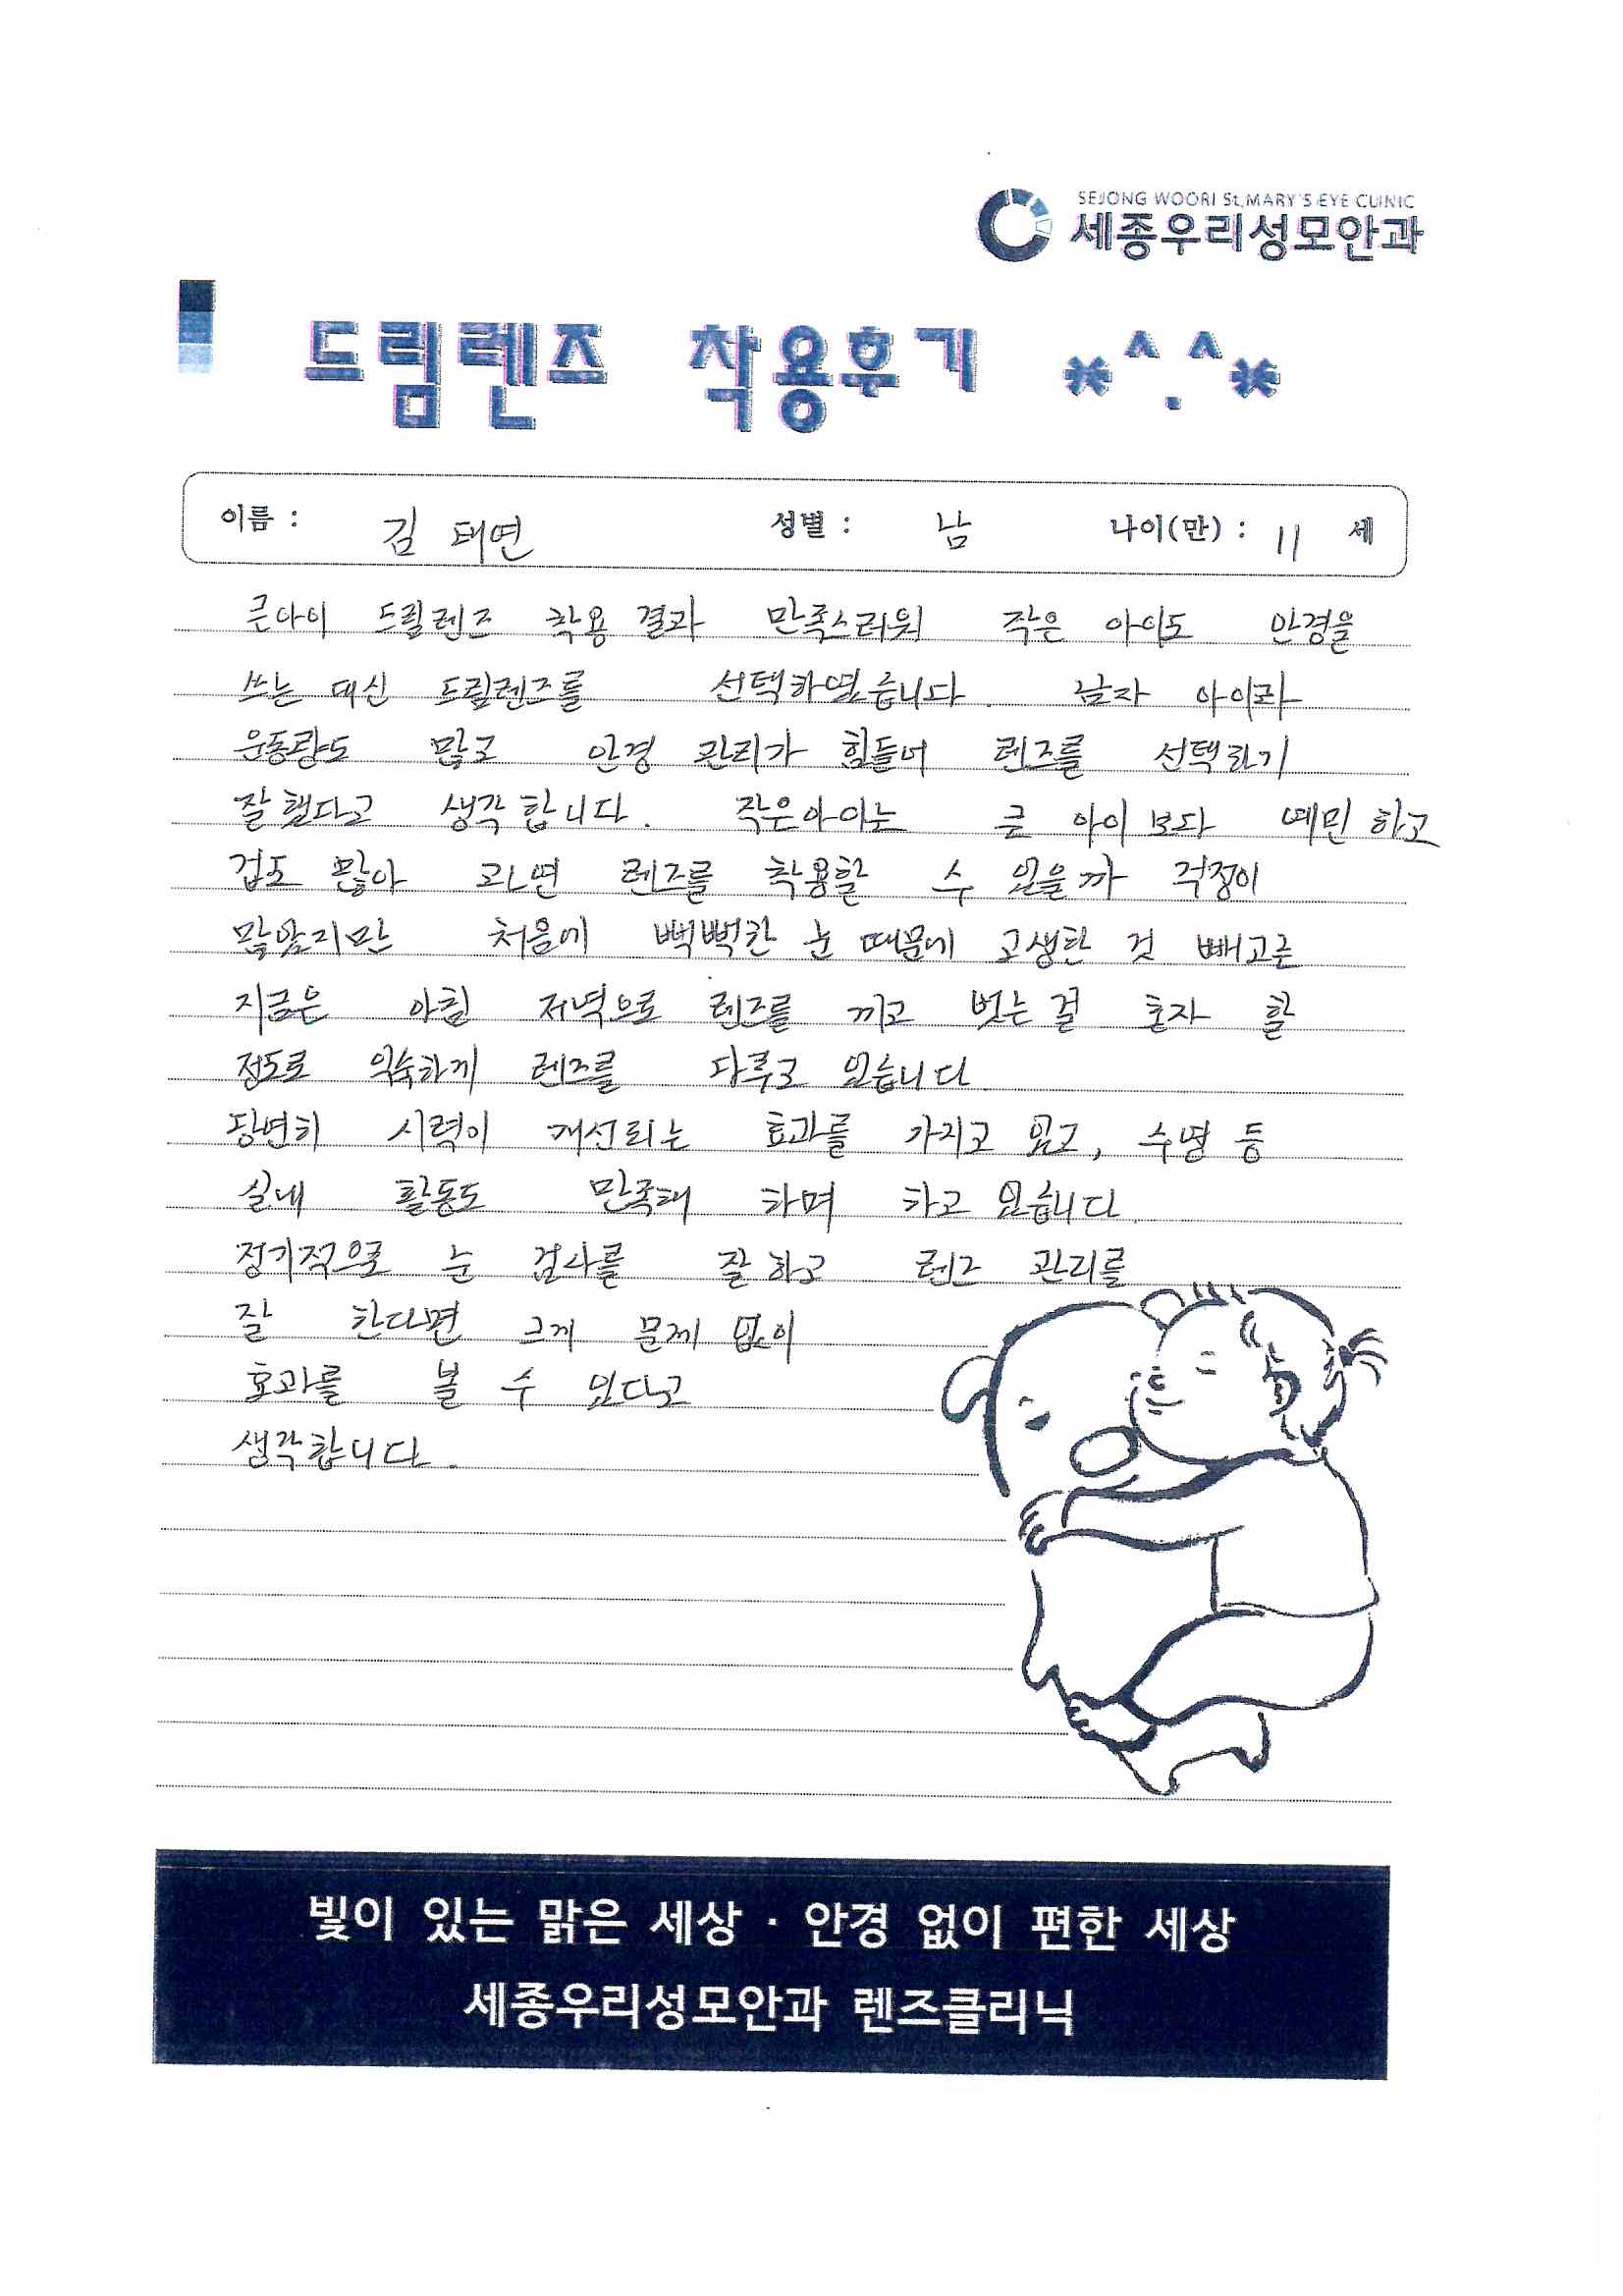 SEJONG WOORI St.MARY'S EYE CLINIC
세종우리성모안과
드림렌즈 착용후기 *^.^*
이름 : 김태연 성별 : 남 나이(만) : 11 세
큰아이 드림렌즈 착용 결과 만족스러워 작은 아이도 안경을
쓰는 대신 드림렌즈를 선택하였습니다. 남자 아이라
운동량도 많고 안경 관리가 힘들어 렌즈를 선택하기
잘했다고 생각합니다. 작은아이는 큰 아이보다 예민하고
겁도 많아 과연 렌즈를 착용할 수 있을까 걱정이
많았지만 처음에 뻑뻑한 눈 때문에 고생한 것 빼고는
지금은 아침 저녁으로 렌즈를 끼고 벗는 걸 혼자 할
정도로 익숙하게 렌즈를 다루고 있습니다.
당연히 시력이 개선되는 효과를 가지고 있고, 수영 등
실내 활동도 만족해 하며 하고 있습니다.
정기적으로 눈 검사를 잘 하고 렌즈 관리를
잘 한다면 크게 문제 없이
효과를 볼 수 있다고
생각합니다.
빛이 있는 맑은 세상 · 안경 없이 편한 세상
세종우리성모안과 렌즈클리닉